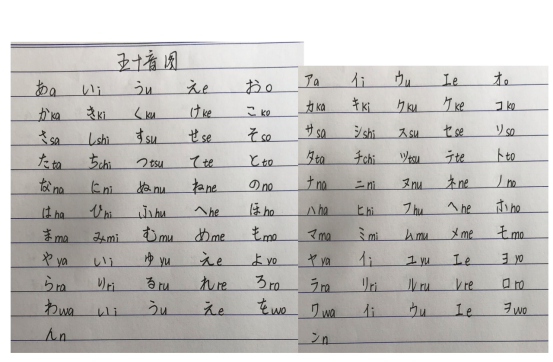 五十音图
あa いi うu えe おo
かka きki くku けke こko
さsa しshi すsu せse そso
たta ちchi つtsu てte とto
なna にni ぬnu ねne のno
はha ひhi ふhu へhe ほho
まma みmi むmu めme もmo
やya いi ゆyu えe よyo
らra りri るru れre ろro
わwa いi うu えe をwo
んn
アa イi ウu エe オo
カka キki クku ケke コko
サsa シshi スsu セse ソso
タta チchi ツtsu テte トto
ナna ニni ヌnu ネne ノno
ハha ヒhi フhu ヘhe ホho
マma ミmi ムmu メme モmo
ヤya イi ユyu エe ヨyo
ラra リri ルru レre ロro
ワwa イi ウu エe ヲwo
ンn